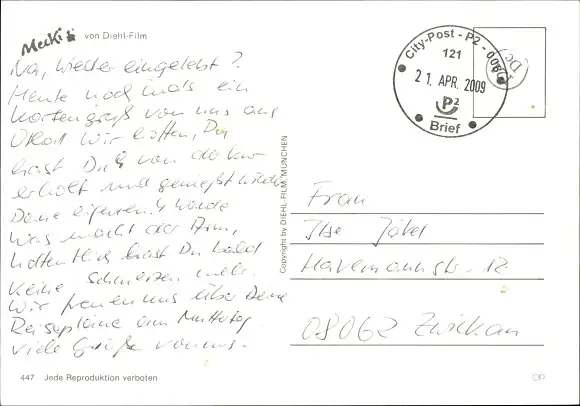 Mecki von Diehl-Film
Na, wieder eingelebt?
Heute noch mals ein
Kartengruß von uns aus
Wir hoffen, Du
hast Dich von der Kur
erholt und genießt wieder
Deine eigenen 4 Wände
Was macht der Arm,
hoffentlich hast Du bald
keine Schmerzen mehr.
Wir freuen uns über Deine
Reisepläne am Muttertag.
Viele Grüße von uns.
447 Jede Reproduktion verboten
Copyright by DIEHL-FILM, MÜNCHEN
City-Post - P2 - 008
121
21. APR. 2009
P2
Brief
Frau
Ilse Jäkel
Havemannstr. 12
08062 Zwickau